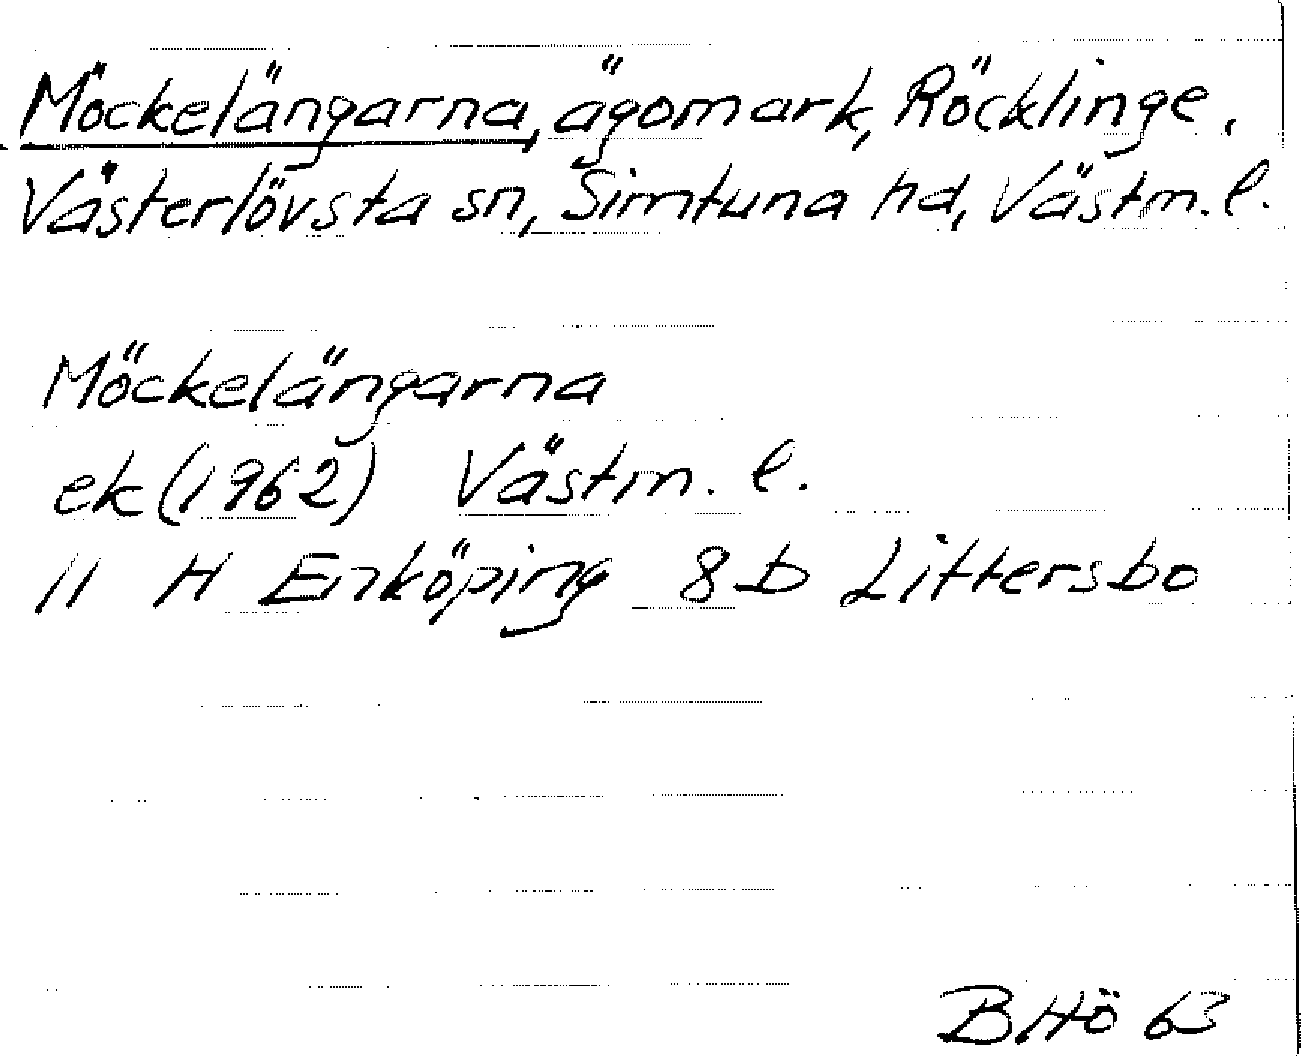 Möckelängarna, ägomark, Röcklinge,
Västerlövsta sn, Simtuna hd, Västm. l.
Möckelängarna
ek (1962) Västm. l.
11 H Enköping 8 b Littersbo
BHö 63